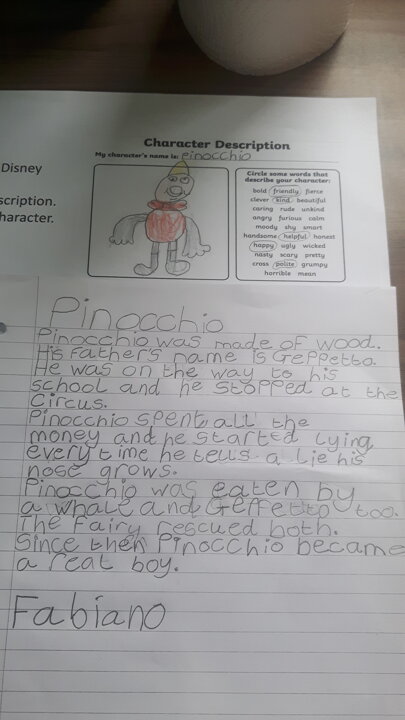 Disney
scription.
haracter.
Character Description
My character's name is: Pinocchio
Circle some words that
describe your character:
bold friendly fierce
clever kind beautiful
caring rude unkind
angry furious calm
moody shy smart
handsome helpful honest
happy ugly wicked
nasty scary pretty
cross polite grumpy
horrible mean
Pinocchio
Pinocchio was made of wood.
His father's name is Geppetto.
He was on the way to his
school and he stopped at the
circus.
Pinocchio spent all the
money and he started lying
every time he tells a lie his
nose grows.
Pinocchio was eaten by
a whale and Geffetto too.
The fairy rescued both.
Since then Pinocchio became
a real boy.
Fabiano